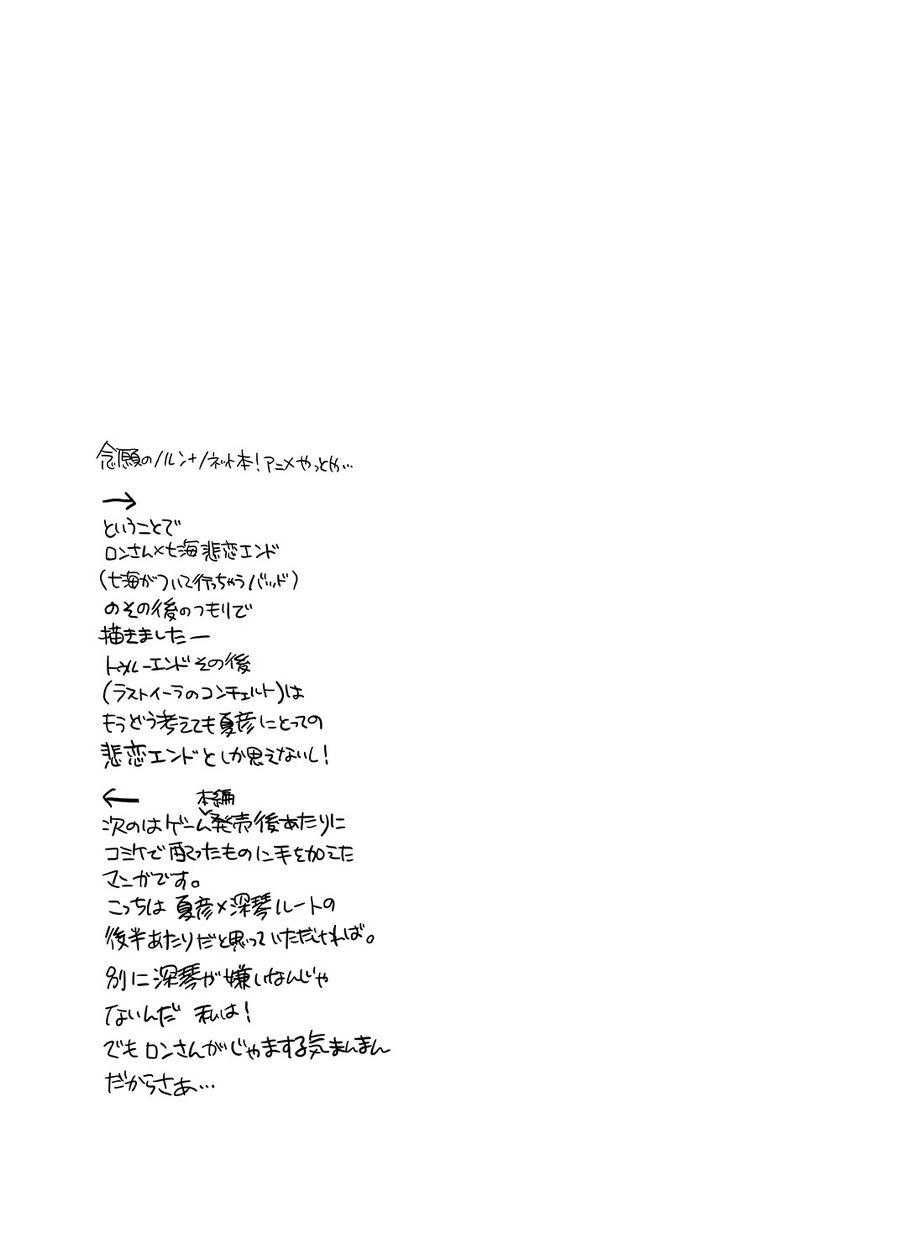 念願のノルン+ノネット本!アニメやっとや…
→
ということで
ロンさん×七海 悲恋エンド
(七海がついて行っちゃうバッド)
のその後のつもりで
描きましたー
トゥルーエンドその後
(ラストイーラのコンチェルト)は
もうどう考えても夏彦にとっての
悲恋エンドとしか思えないし!
←
本編
次のはゲーム発売後あたりに
コミケで配ったものに手を加えた
マンガです。
こっちは 夏彦×深琴ルートの
後半あたりだと思っていただければ。
別に深琴が嫌いなんじゃ
ないんだ 私は!
でもロンさんがじゃまする気まんまん
だからさぁ…